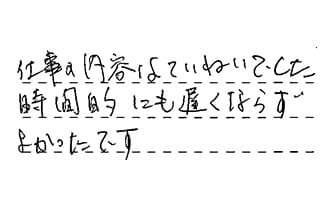 仕事の内容はていねいでした
時間的にも遅くならず
よかったです